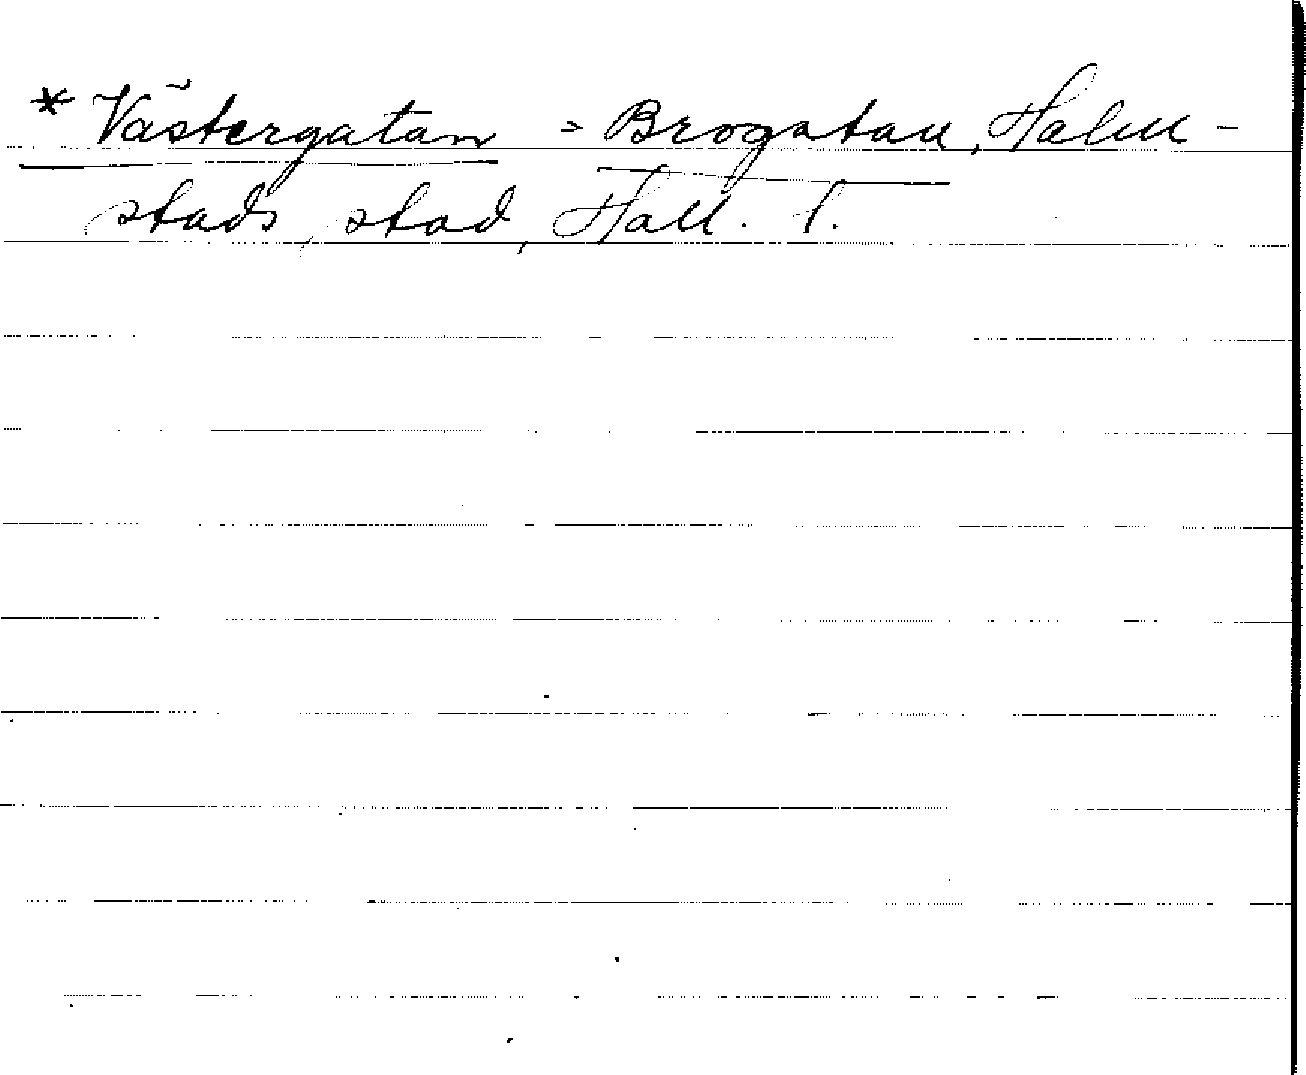 * Västergatan = Brogatan, Halm-
stads stad, Hall. l.